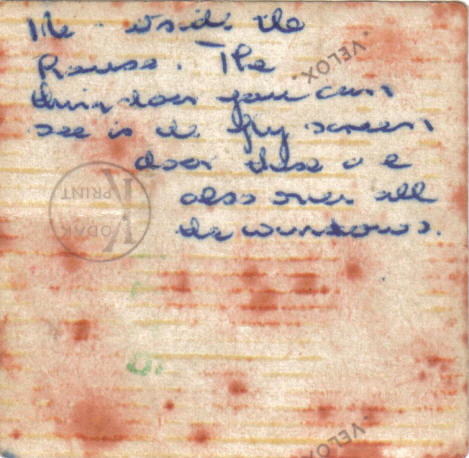 Me outside the
House. The
thin door you can
see is the fly screen
door these are
also over all
the windows.
VELOX
KODAK
PRINT
VELOX